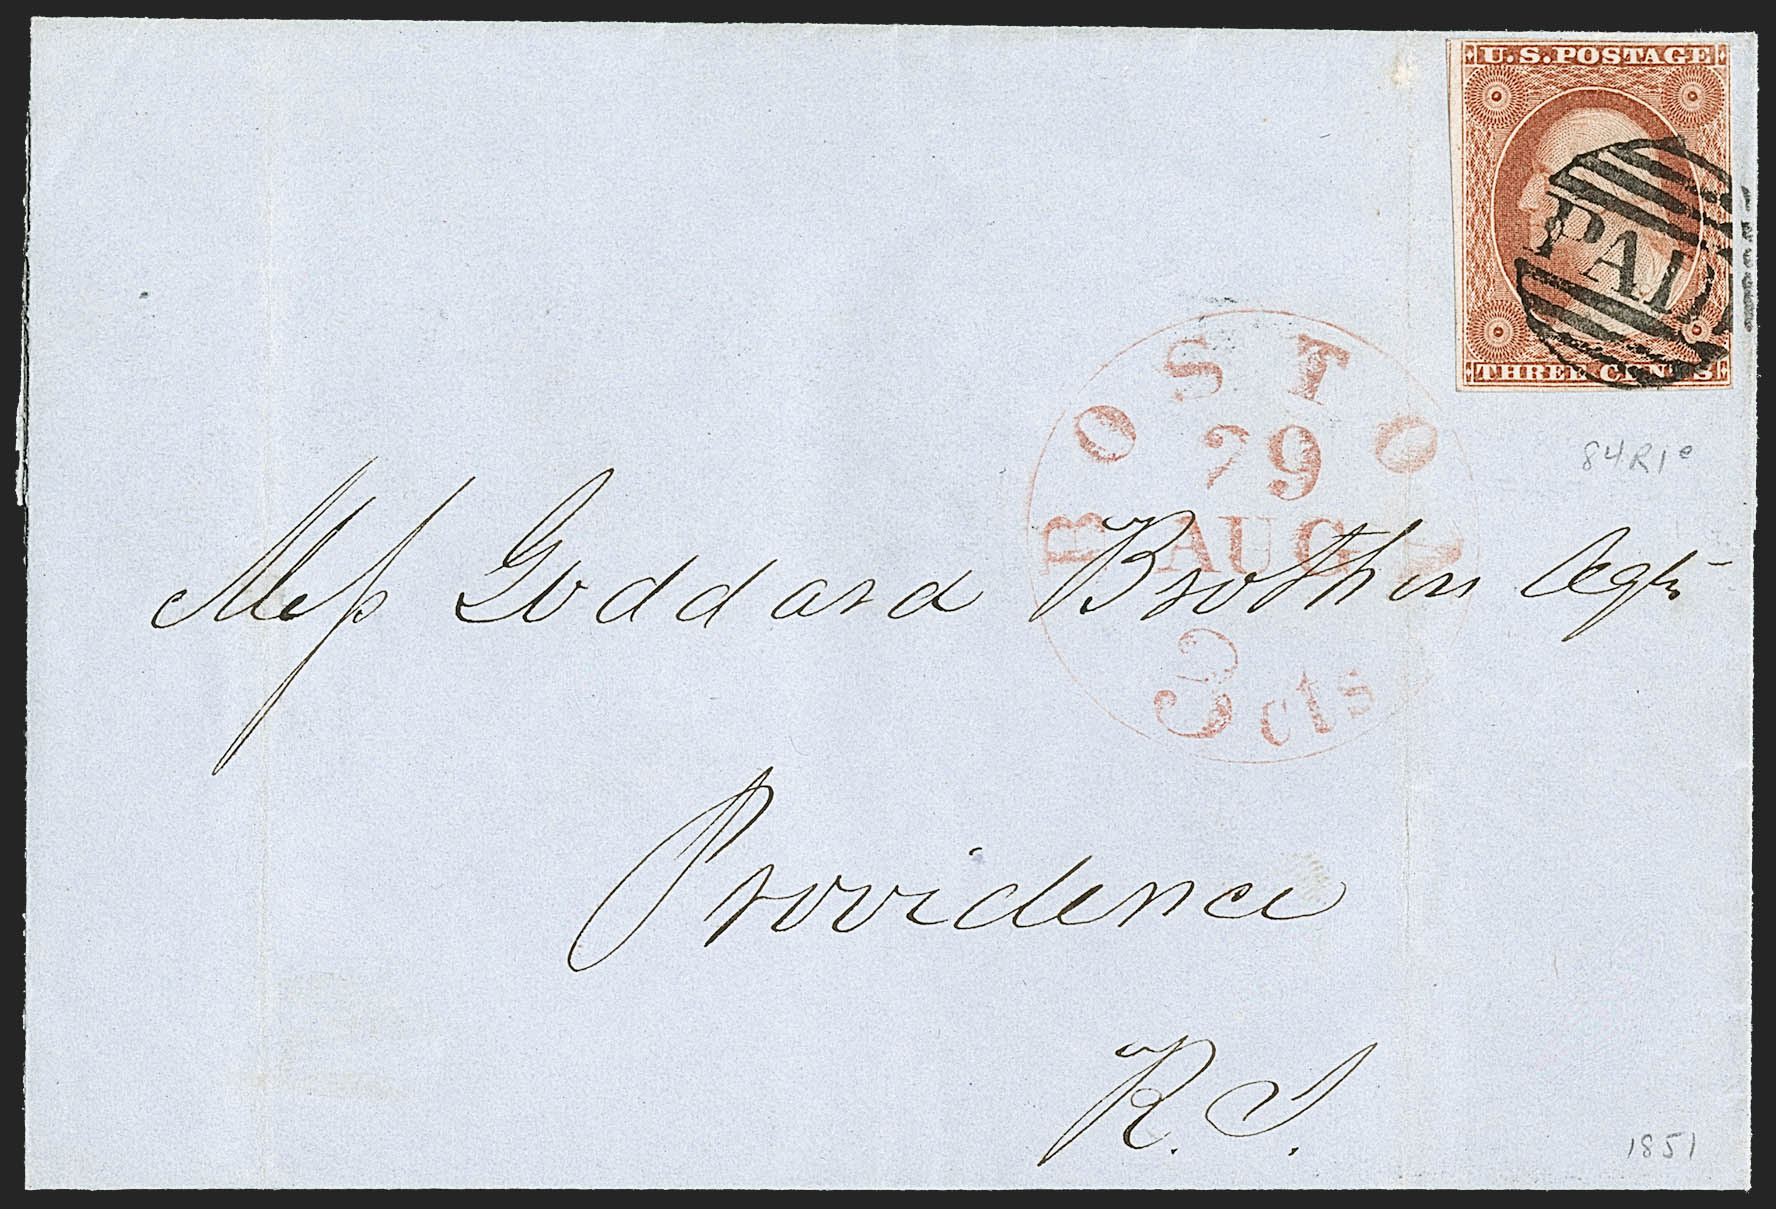 U.S. POSTAGE
PAID
THREE CENTS
BOSTON
29
AUG
3 cts
84R1e
Mess Goddard Brothers Agts
Providence
R.I.
1851